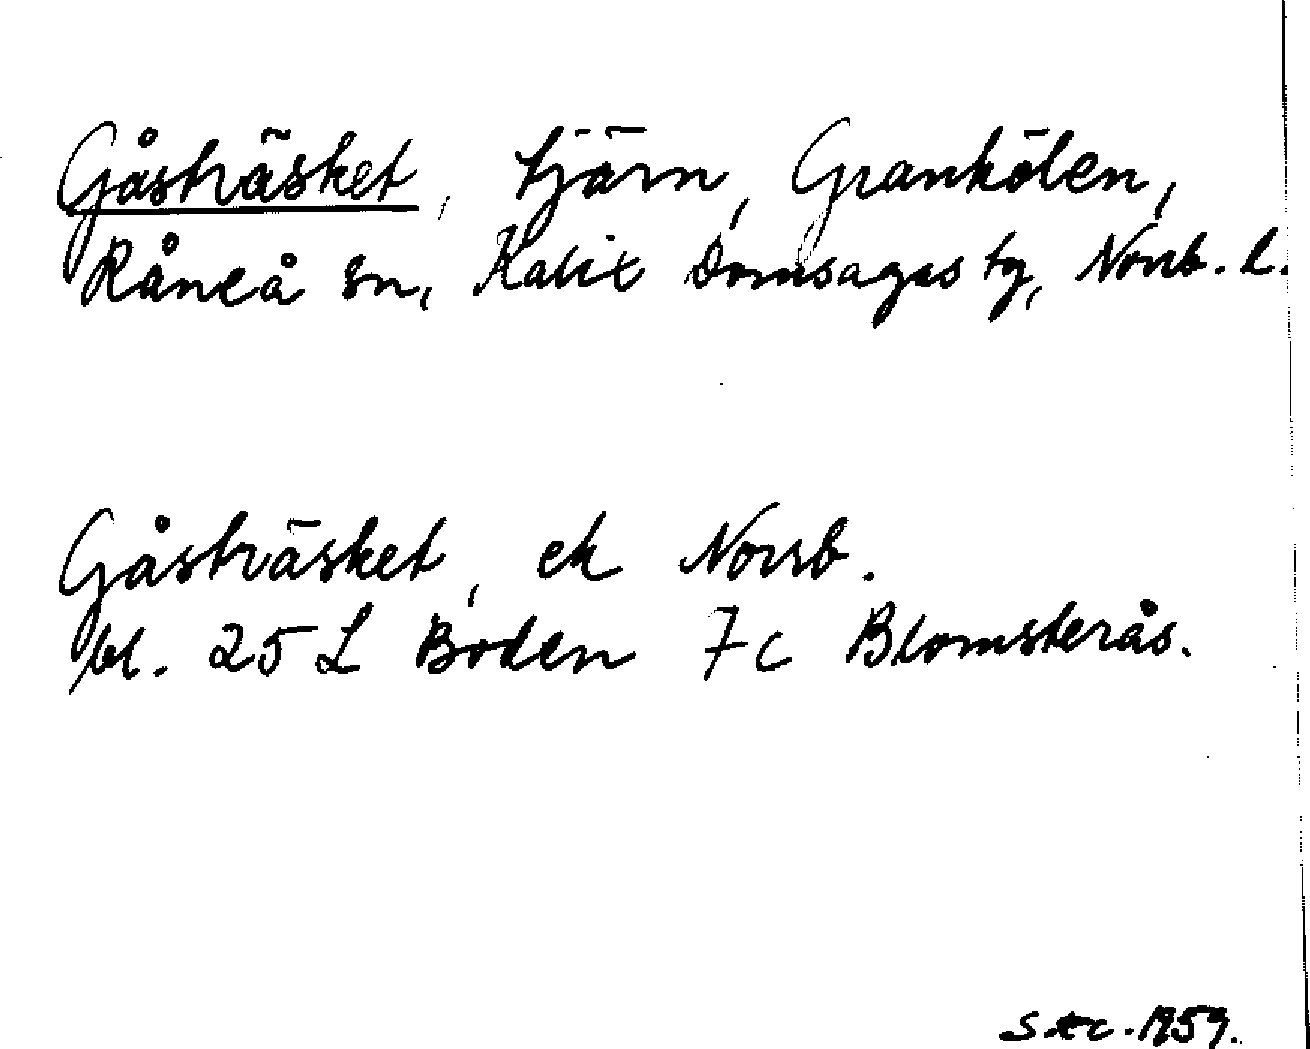 Gåsträsket, tjärn, Grankölen,
Råneå sn, Kalix Domsagas tg, Norrb. l.
Gåsträsket, ek Norrb.
bl. 25 L Boden 7c Blomsterås.
1959.